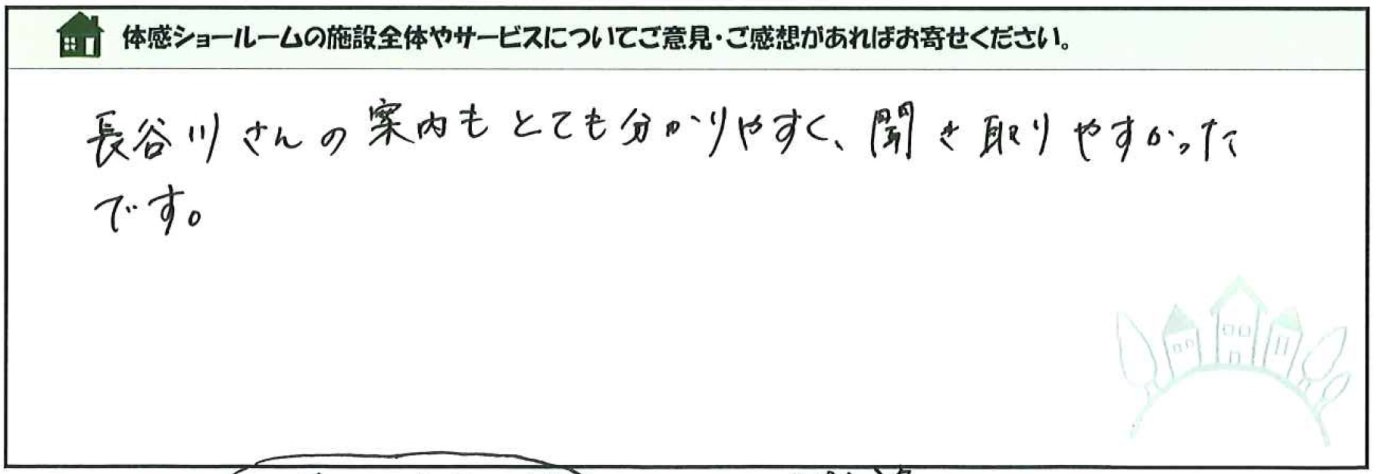 体感ショールームの施設全体やサービスについてご意見・ご感想があればお寄せください。
長谷川さんの案内もとても分かりやすく、聞き取りやすかった
です。